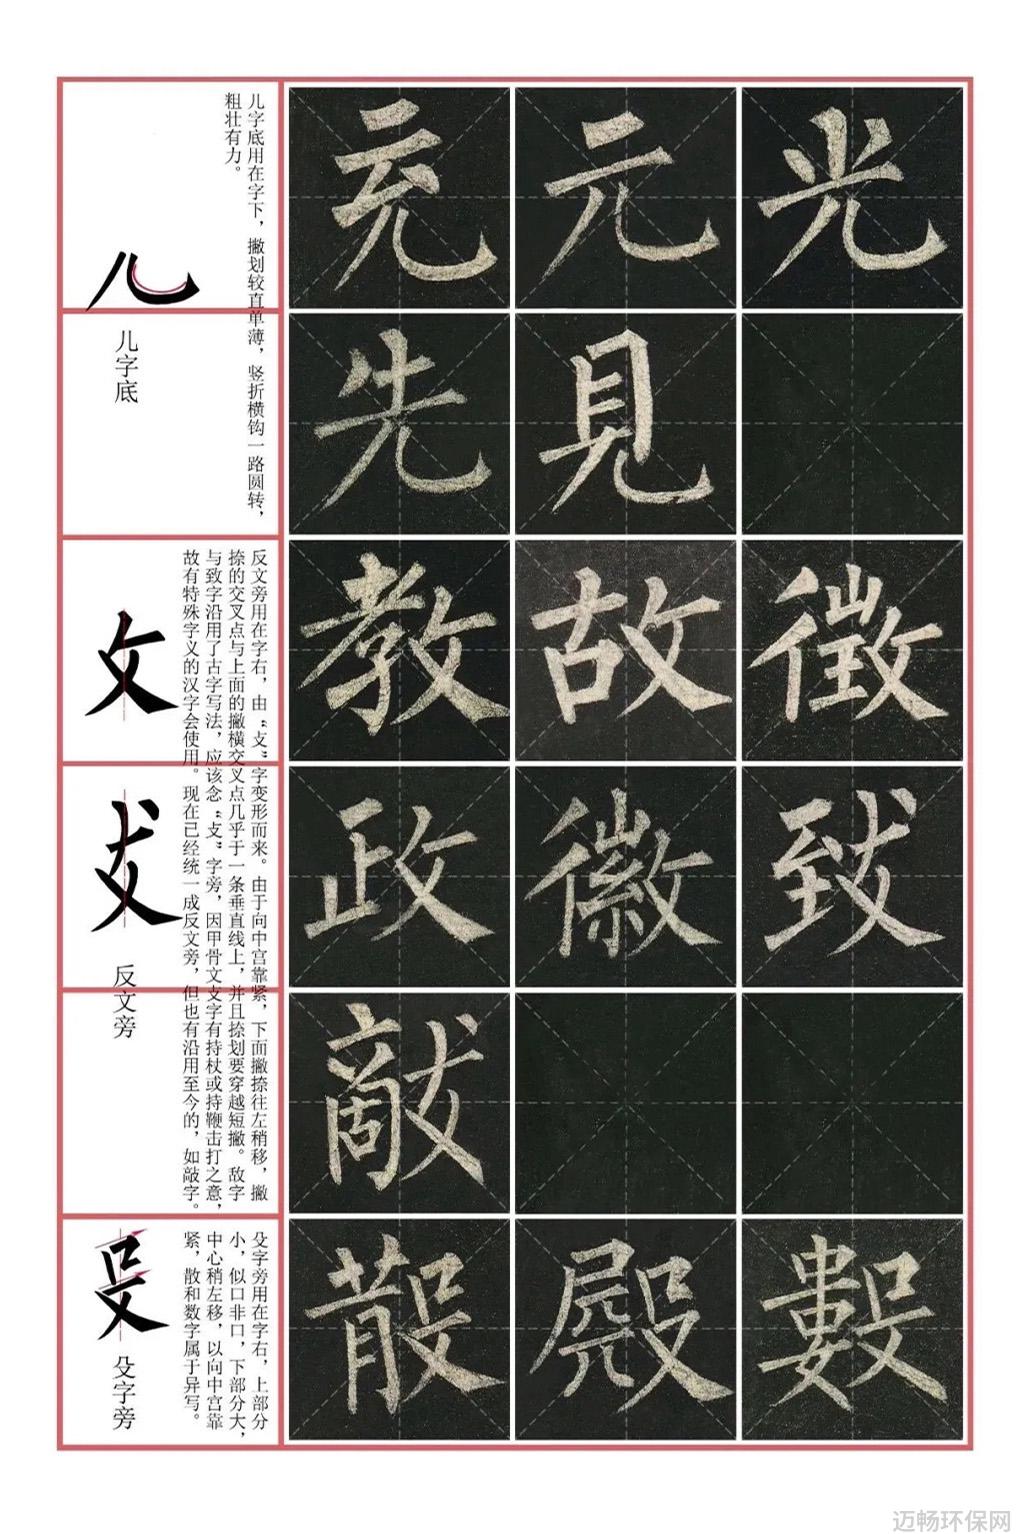 儿字底用在字下，撇划较直单薄，竖折横钩一路圆转，
粗壮有力。
儿
儿字底
充 元 光
先 見
反文旁用在字右，由“攴”字变形而来。由于向中宫靠紧，下面撇捺往左稍移，撇
捺的交叉点与上面的撇横交叉点几乎于一条垂直线上，并且捺划要穿越短撇。敌字
与致字沿用了古字写法，应该念“攴”字旁，因甲骨文支字有持杖或持鞭击打之意，
故有特殊字义的汉字会使用。现在已经统一成反文旁，但也有沿用至今的，如敲字。
攵
反文旁
教 故 徵
政 徽 致
敵
殳字旁用在字右，上部分
小，似口非口，下部分大，
中心稍左移，以向中宫靠
紧，散和数字属于异写。
殳
殳字旁
散 殿 數
迈畅环保网